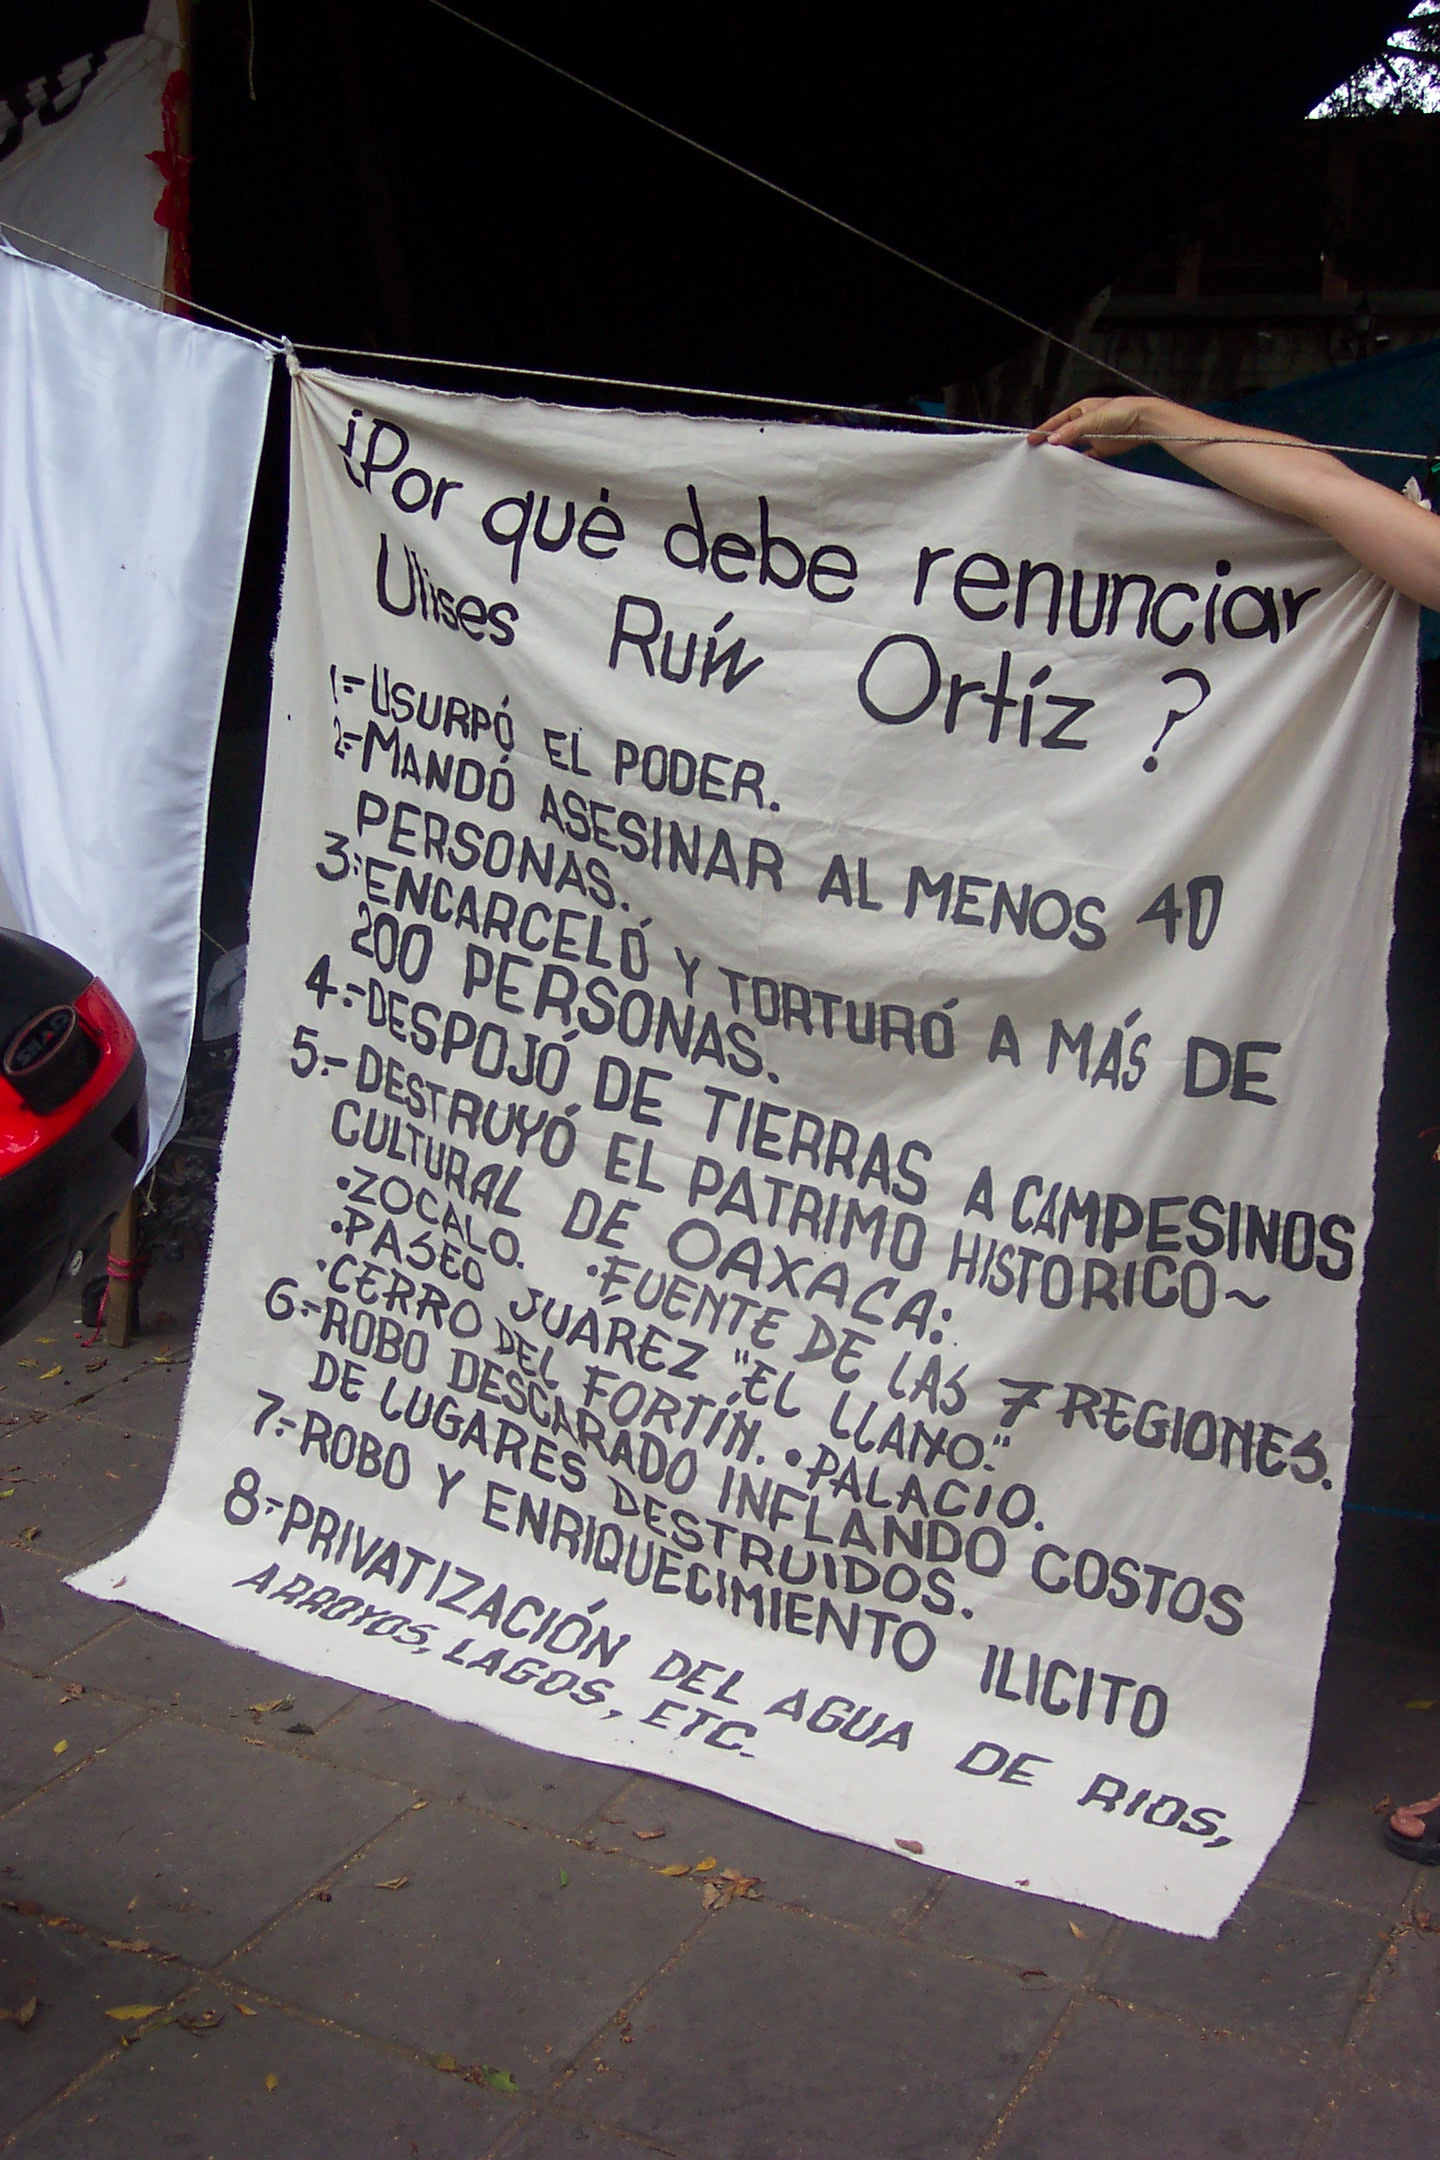 ¡Por qué debe renunciar
Ulises Ruíz Ortíz ?
1.- USURPÓ EL PODER.
2.- MANDÓ ASESINAR AL MENOS 40
PERSONAS.
3.- ENCARCELÓ Y TORTURÓ A MÁS DE
200 PERSONAS.
4.- DESPOJÓ DE TIERRAS A CAMPESINOS
5.- DESTRUYÓ EL PATRIMO HISTORICO~
CULTURAL DE OAXACA:
•ZOCALO. •FUENTE DE LAS 7 REGIONES.
•PASEO JUÁREZ "EL LLANO."
•CERRO DEL FORTÍN. •PALACIO.
6.- ROBO DESCARADO INFLANDO COSTOS
DE LUGARES DESTRUIDOS.
7.- ROBO Y ENRIQUECIMIENTO ILICITO
8.- PRIVATIZACIÓN DEL AGUA DE RIOS,
ARROYOS, LAGOS, ETC.
SHAD